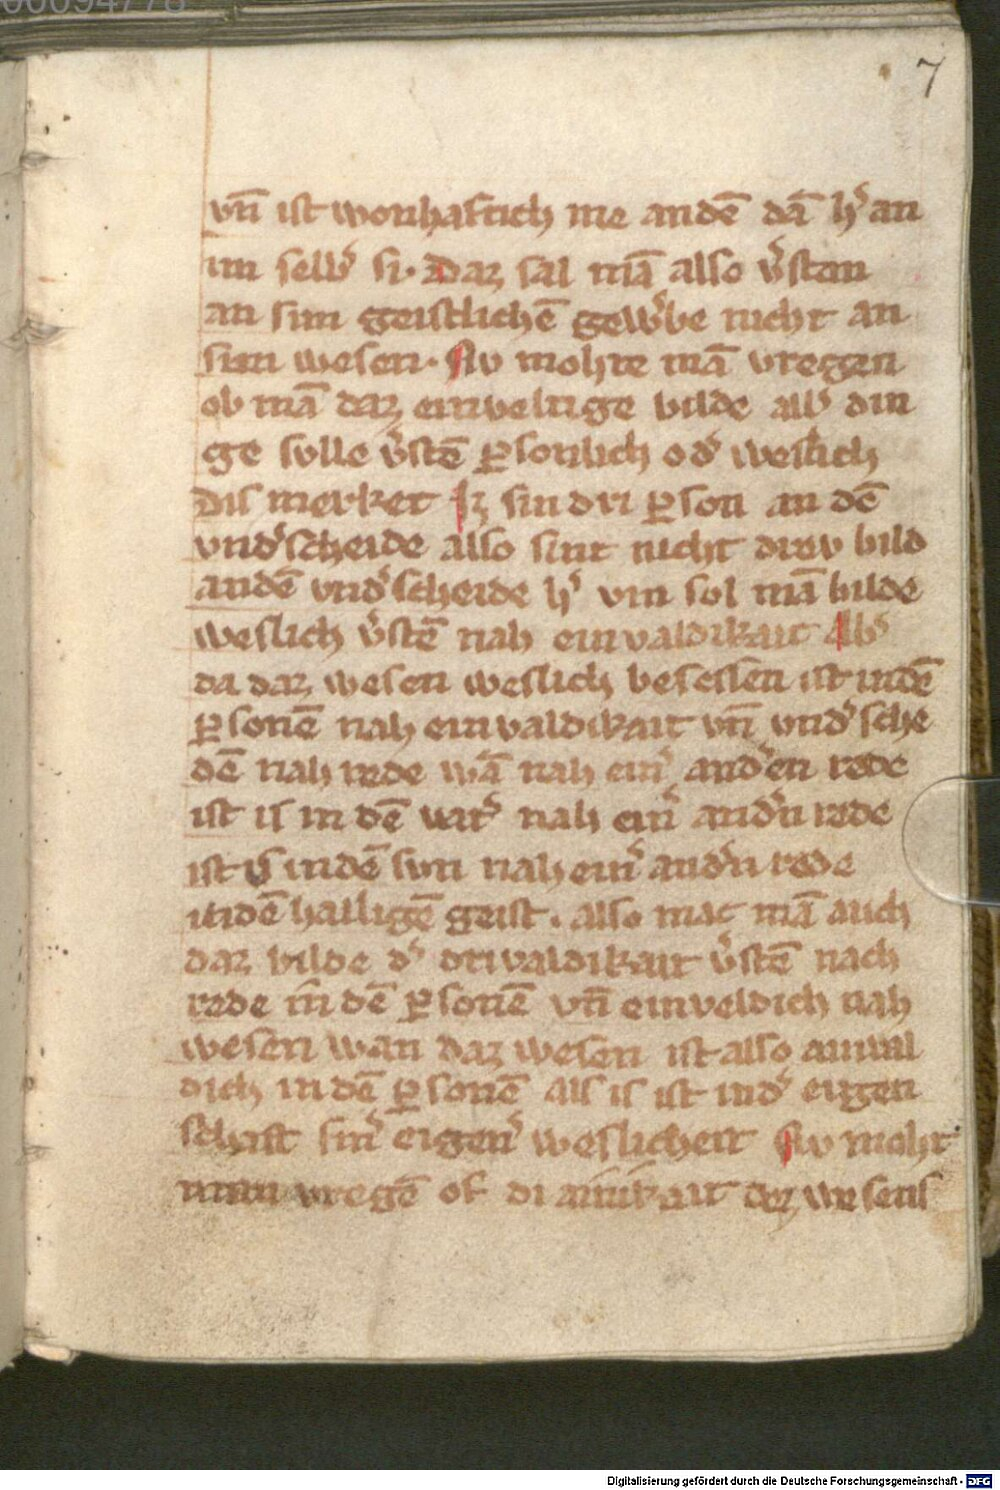 7
vn̄ ist wonhaftich me an dē dā h͛ an
im selb͛ si. Daz sal mā also v͛stan
an sim geistlichē gew͛be nicht an
sim wesen. Nv mohte mā vregen
ob mā daz einveltige bilde all͛ din
ge sulle v͛stē ꝑsonlich od͛ weslich
Dis merket Iz sin dri ꝑson an dē
vnd͛scheide also sint nicht drev bild
an dē vnd͛scheide h͛ vm sol mā bilde
weslich v͛stē nah einvaldikait Ab͛
da daz wesen weslich besessen ist in dē
ꝑsonē nah einvaldikait vn̄ vnd͛sche
dē nah rede wā nah ein͛ anđen rede
ist is in dē vat͛ nah ein͛ and͛n rede
ist is in dē sun nah ein͛ and͛n rede
in dē hailigē geist. also mac mā auch
daz bilde d͛ drivaldikait v͛stē nach
rede in dē ꝑsonē vn̄ einveldich nah
wesen wan daz wesen ist also ainval
dich in dē ꝑsonē als is ist in d͛ eigen
schaft sin͛ eigen͛ weslicheit Nv moht
man vregē of di ainikait dez wesens
Digitalisierung gefördert durch die Deutsche Forschungsgemeinschaft - DFG